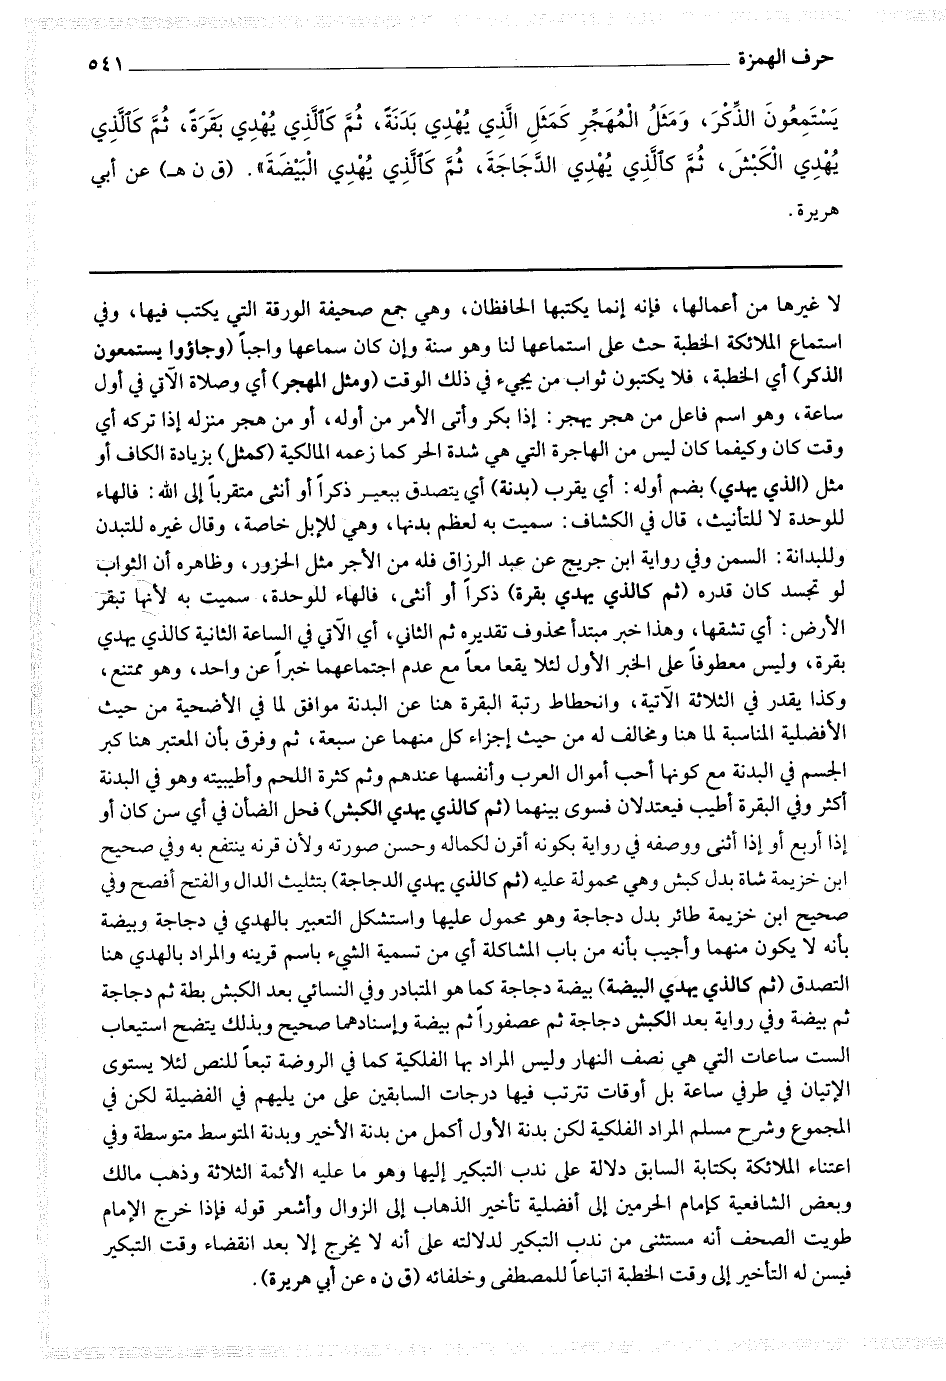 حرف الهمزة ٥٤١
يَسْتَمِعُونَ الذِّكْرَ، وَمَثَلُ الْمُهَجِّرِ كَمَثَلِ الَّذِي يُهْدِي بَدَنَةً، ثُمَّ كَٱلَّذِي يُهْدِي بَقَرَةً، ثُمَّ كَٱلَّذِي
يُهْدِي الْكَبْشَ، ثُمَّ كَٱلَّذِي يُهْدِي الدَّجَاجَةَ، ثُمَّ كَٱلَّذِي يُهْدِي الْبَيْضَةَ». (ق ن هـ) عن أبي
هريرة.
لا غيرها من أعمالها، فإنه إنما يكتبها الحافظان، وهي جمع صحيفة الورقة التي يكتب فيها، وفي
استماع الملائكة الخطبة حث على استماعها لنا وهو سنة وإن كان سماعها واجباً (وجاؤوا يستمعون
الذكر) أي الخطبة، فلا يكتبون ثواب من يجيء في ذلك الوقت (ومثل المهجر) أي وصلاة الآتي في أول
ساعة، وهو اسم فاعل من هجر يهجر: إذا بكر وأتى الأمر من أوله، أو من هجر منزله إذا تركه أي
وقت كان وكيفما كان ليس من الهاجرة التي هي شدة الحر كما زعمه المالكية (كمثل) بزيادة الكاف أو
مثل (الذي يهدي) بضم أوله: أي يقرب (بدنة) أي يتصدق ببعير ذكراً أو أنثى متقرباً إلى الله: فالهاء
للوحدة لا للتأنيث، قال في الكشاف: سميت به لعظم بدنها، وهي للإبل خاصة، وقال غيره للتبدن
وللبدانة: السمن وفي رواية ابن جريج عن عبد الرزاق فله من الأجر مثل الجزور، وظاهره أن الثواب
لو تجسد كان قدره (ثم كالذي يهدي بقرة) ذكراً أو أنثى، فالهاء للوحدة، سميت به لأنها تبقر
الأرض: أي تشقها، وهذا خبر مبتدأ محذوف تقديره ثم الثاني، أي الآتي في الساعة الثانية كالذي يهدي
بقرة، وليس معطوفاً على الخبر الأول لئلا يقعا معاً مع عدم اجتماعهما خبراً عن واحد، وهو ممتنع،
وكذا يقدر في الثلاثة الآتية، وانحطاط رتبة البقرة هنا عن البدنة موافق لما في الأضحية من حيث
الأفضلية المناسبة لما هنا ومخالف له من حيث إجزاء كل منهما عن سبعة، ثم وفرق بأن المعتبر هنا كبر
الجسم في البدنة مع كونها أحب أموال العرب وأنفسها عندهم وثم كثرة اللحم وأطيبيته وهو في البدنة
أكثر وفي البقرة أطيب فيعتدلان فسوى بينهما (ثم كالذي يهدي الكبش) فحل الضأن في أي سن كان أو
إذا أربع أو إذا أثنى ووصفه في رواية بكونه أقرن لكماله وحسن صورته ولأن قرنه ينتفع به وفي صحيح
ابن خزيمة شاة بدل كبش وهي محمولة عليه (ثم كالذي يهدي الدجاجة) بتثليث الدال والفتح أفصح وفي
صحيح ابن خزيمة طائر بدل دجاجة وهو محمول عليها واستشكل التعبير بالهدي في دجاجة وبيضة
بأنه لا يكون منهما وأجيب بأنه من باب المشاكلة أي من تسمية الشيء باسم قرينه والمراد بالهدي هنا
التصدق (ثم كالذي يهدي البيضة) بيضة دجاجة كما هو المتبادر وفي النسائي بعد الكبش بطة ثم دجاجة
ثم بيضة وفي رواية بعد الكبش دجاجة ثم عصفوراً ثم بيضة وإسنادهما صحيح وبذلك يتضح استيعاب
الست ساعات التي هي نصف النهار وليس المراد بها الفلكية كما في الروضة تبعاً للنص لئلا يستوى
الإتيان في طرفي ساعة بل أوقات تترتب فيها درجات السابقين على من يليهم في الفضيلة لكن في
المجموع وشرح مسلم المراد الفلكية لكن بدنة الأول أكمل من بدنة الأخير وبدنة المتوسط متوسطة وفي
اعتناء الملائكة بكتابة السابق دلالة على ندب التبكير إليها وهو ما عليه الأئمة الثلاثة وذهب مالك
وبعض الشافعية كإمام الحرمين إلى أفضلية تأخير الذهاب إلى الزوال وأشعر قوله فإذا خرج الإمام
طويت الصحف أنه مستثنى من ندب التبكير لدلالته على أنه لا يخرج إلا بعد انقضاء وقت التبكير
فيسن له التأخير إلى وقت الخطبة اتباعاً للمصطفى وخلفائه (ق ن ه عن أبي هريرة).